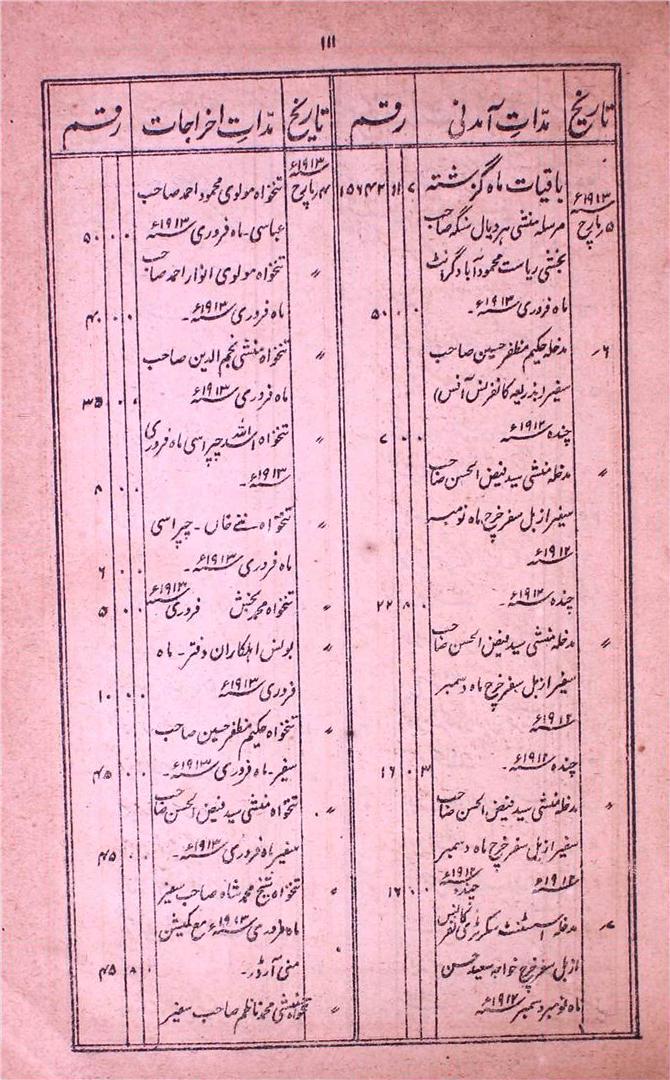 ۱۱۱
تاریخ مدّاتِ آمدنی رقم تاریخ مدّاتِ اخراجات رقم
باقیات ماہ گزشتہ ۷ ۱۱ ۱۵۶۴۲
۱۹۱۳ء ۵ مارچ مرسلہ منشی ہردیال سنگہ صاحب
بخشی ریاست محمود آباد گرانٹ
ماہ فروری ۱۹۱۳ء۔ ۰ ۰ ۵۰
۶ مدخلہ حکیم مظفر حسین صاحب
سفیر (بذریعہ کانفرنس آفس)
چندہ ۱۹۱۲ء ۰ ۰ ۷
〃 مدخلہ منشی سید فیض الحسن صاحب
سفیر از بل سفر خرچ ماہ نومبر
۱۹۱۲ء
چندہ ۱۹۱۲ء۔ ۰ ۸ ۲۲
〃 مدخلہ منشی سید فیض الحسن صاحب
سفیر از بل سفر خرچ ماہ دسمبر
۱۹۱۲ء
چندہ ۱۹۱۲ء۔ ۳ ۰ ۱۶
〃 مدخلہ منشی سید فیض الحسن صاحب
سفیر از بل سفر خرچ ماہ دسمبر
۱۹۱۲ء چندہ ۱۹۱۲ء ۰ ۰ ۱۶
مدخلہ اسسٹنٹ سکریٹری کانفرنس
از بل سفر خرچ خواجہ سعید حسن
ماہ نومبر دسمبر ۱۹۱۲ء
۱۹۱۳ء ۴ مارچ تنخواہ مولوی محمود احمد صاحب
عباسی۔ ماہ فروری ۱۹۱۳ء ۰ ۰ ۵۰
〃 تنخواہ مولوی انوار احمد صاحب
ماہ فروری ۱۹۱۳ء۔ ۰ ۰ ۴۰
〃 تنخواہ منشی نجم الدین صاحب
ماہ فروری ۱۹۱۳ء ۰ ۰ ۳۵
〃 تنخواہ چپراسی ماہ فروری
۱۹۱۳ء۔ ۰ ۰ ۸
〃 تنخواہ ننھے خاں۔ چپراسی
ماہ فروری ۱۹۱۳ء۔ ۰ ۰ ۶
〃 تنخواہ محمد بخش فروری ۱۹۱۳ء ۰ ۰ ۵
〃 بونس اہلکاران دفتر۔ ماہ
فروری ۱۹۱۳ء ۰ ۰ ۱۰
〃 تنخواہ حکیم مظفر حسین صاحب
سفیر۔ ماہ فروری ۱۹۱۳ء۔ ۰ ۰ ۴۵
〃 تنخواہ منشی سید فیض الحسن صاحب
سفیر ماہ فروری ۱۹۱۳ء۔ ۰ ۰ ۴۵
〃 تنخواہ شیخ محمد شاہ صاحب سفیر
ماہ فروری ۱۹۱۳ء مع کمیشن
منی آرڈر۔ ۰ ۸ ۴۵
〃 تنخواہ منشی محمد ناظم صاحب سفیر